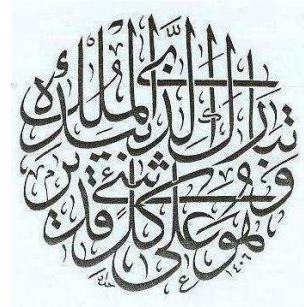 تبارك الذي بيده الملك
وهو على كل شيء قدير
١٤٠٦